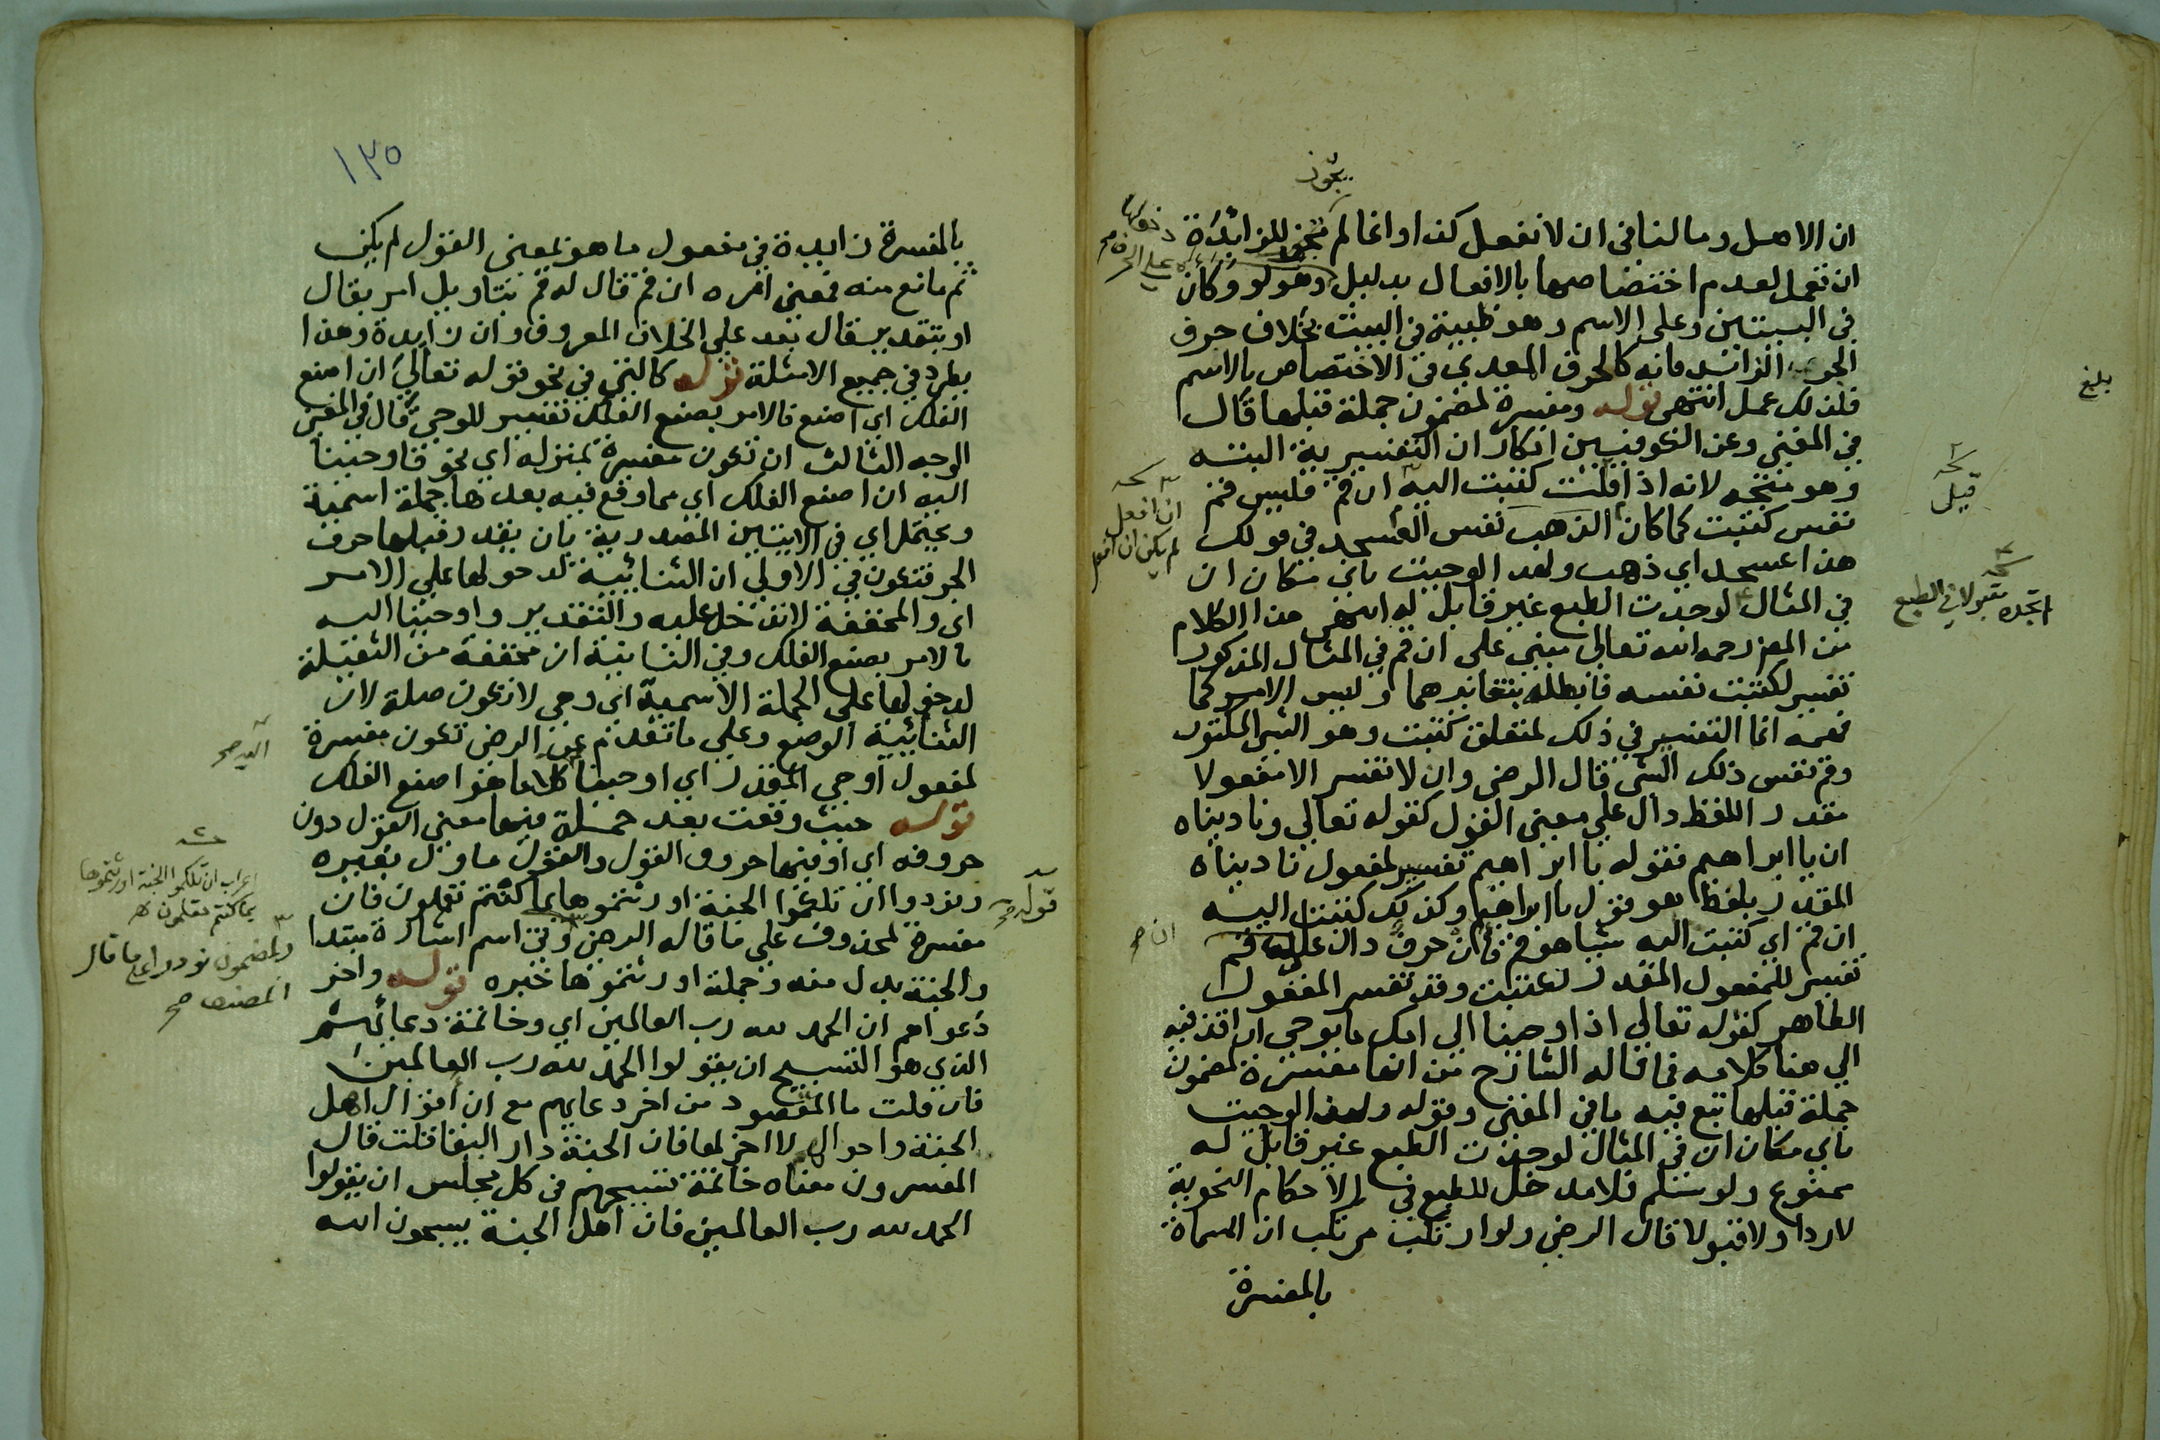 يجوز
ان الاصل وما لنا في ان لا نفعل كذا وانما لم يجز للزائدة
ان تعمل لعدم اختصاصها بالافعال بدليل دخولها على الحرف وهو لو وكان
في البيتين وعلى الاسم وهو ظبية في البيت بخلاف حرف
الجر الزائد فانه كالحرف المعدي في الاختصاص بالاسم
فلذلك عمل انتهى قوله ومفسرة لمضمون جملة قبلها قال
في المغني وعن الكوفيين انكار ان التفسيرية البتة
وهو متجه لانه اذا قلت كتبت اليه ان قم فليس قم
نفس كتبت كما كان الذهب نفس العسجد في قولك
هذا عسجد اي ذهب ولهذا لو جيت باي مكان ان
في المثال لوجدت الطبع غير قابل له انتهى هذا الكلام
من المص رحمه الله تعالى مبني على ان قم في المثال المذكور
تفسير لكتبت نفسه فابطله بتغايرهما وليس الامر كما
فهمه انما التفسير في ذلك لمتعلق كتبت وهو الشي المكتوب
وقم نفس ذلك الشي قال الرضي وان لا تفسر الا مفعولا
مقدرا للفظ دال على معنى القول كقوله تعالى وناديناه
ان يا ابراهيم فقوله يا ابراهيم تفسير لمفعول ناديناه
المقدر بلفظ هو قول يا ابراهيم وكذلك كتبت اليه
ان قم اي كتبت اليه شيا هو قم فان حرف دال على ان قم
تفسير للمفعول المقدر لكتبت وقد تفسر المفعول
الظاهر كقوله تعالى اذ اوحينا الى امك ما يوحى ان اقذفيه
الى هنا كلامه فما قاله الشارح من انها مفسرة لمضمون
جملة قبلها تبع فيه ما في المغني وقوله ولهذا لو جيت
باي مكان ان في المثال لوجدت الطبع غير قابل له
ممنوع ولو سلم فلا مدخل للطبع في الاحكام النحوية
لا ردا ولا قبولا قال الرضي ولو ارتكب مرتكب ان المسماة
بالمفسرة
دخولها
على الحرف صح
ان افعل
لم يكن ان افعل
ان صح
بلغ
قبلي
اتجده مقبولا في الطبع
١٣٥
بالمفسرة زايدة في مفعول ما هو بمعنى القول لم يكن
ثم مانع منه فمعنى امره ان قم قال له قم بتاويل امر بقال
او بتقدير قال بعد على الخلاف المعروف وان زايدة وهذا
يطرد في جميع الامثلة قوله كالتي في نحو قوله تعالى ان اصنع
الفلك اي اصنع فالامر بصنع الفلك تفسير للوحي قال في المغني
الوجه الثالث ان تكون مفسرة بمنزلة اي نحو فاوحينا
اليه ان اصنع الفلك اي مما وقع فيه بعدها جملة اسمية
ويحتمل اي في الايتين المصدرية بان يقدر قبلها حرف
الجر فتكون في الاولى ان الثنائية لدخولها على الامر
اي والمخففة لا تدخل عليه والتقدير واوحينا اليه
بالامر بصنع الفلك وفي الثانية ان مخففة من الثقيلة
لدخولها على الجملة الاسمية اي وهي لا تكون صلة لان
الثنائية الوضع وعلى ما تقدم عن الرضي تكون مفسرة
لمفعول اوحي المقدر اي اوحينا كلاما هو اصنع الفلك
قوله حيث وقعت بعد جملة فيها معنى القول دون
حروفه اي او فيها حروف القول والقول ماول بغيره
ونودوا ان تلكموا الجنة اورثتموها بما كنتم تعملون فان
مفسرة لمحذوف على ما قاله الرضي وتي اسم اشارة مبتدا
والجنة بدل منه وجملة اورثتموها خبره قوله واخر
دعواهم ان الحمد لله رب العالمين اي وخاتمة دعائهم
الذي هو التسبيح ان يقولوا الحمد لله رب العالمين
فان قلت ما المقصود من اخر دعايهم مع ان اقوال اهل
الجنة واحوالهم لا اخر لها فان الجنة دار البقا قلت قال
المفسرون معناه خاتمة تسبيحهم في كل مجلس ان يقولوا
الحمد لله رب العالمين فان اهل الجنة يسبحون الله
اليه صح
اعراب ان تلكموا الجنة اورثتموها
بما كنتم تعملون
ولمضمون نودوا على ما قال
المصنف صح
قوله صح